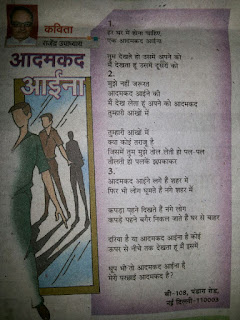 कविता
राजेंद्र उपाध्याय
आदमकद
आईना
1.
हर घर में होना चाहिए
एक आदमकद आईना
तुम देखते हो उसमें अपने को
मैं देखता हूं उसमें दूसरों को
2.
मुझे नहीं जरूरत
आदमकद आईने की
मैं देख लेता हूं अपने को आदमकद
तुम्हारी आंखों में
तुम्हारी आंखों में
क्या कोई तराजू है
जिसमें तुम मुझे तोल लेती हो पल-पल
तौलती हो पलकें झपकाकर
3.
आदमकद आईने लगे हैं शहर में
फिर भी लोग घूमते हैं नंगे शहर में
कपड़ा पहने दिखते हैं नंगे लोग
कपड़े पहने बगैर निकल जाते हैं घर से बाहर
दरिया है या आदमकद आईना है कोई
ऊपर से नीचे तक देखता हूं मैं इसमें
धूप भी तो आदमकद आईना है
मेरी परछाईं आदमकद है?
बी-108, पंडारा रोड,
नई दिल्ली-110003